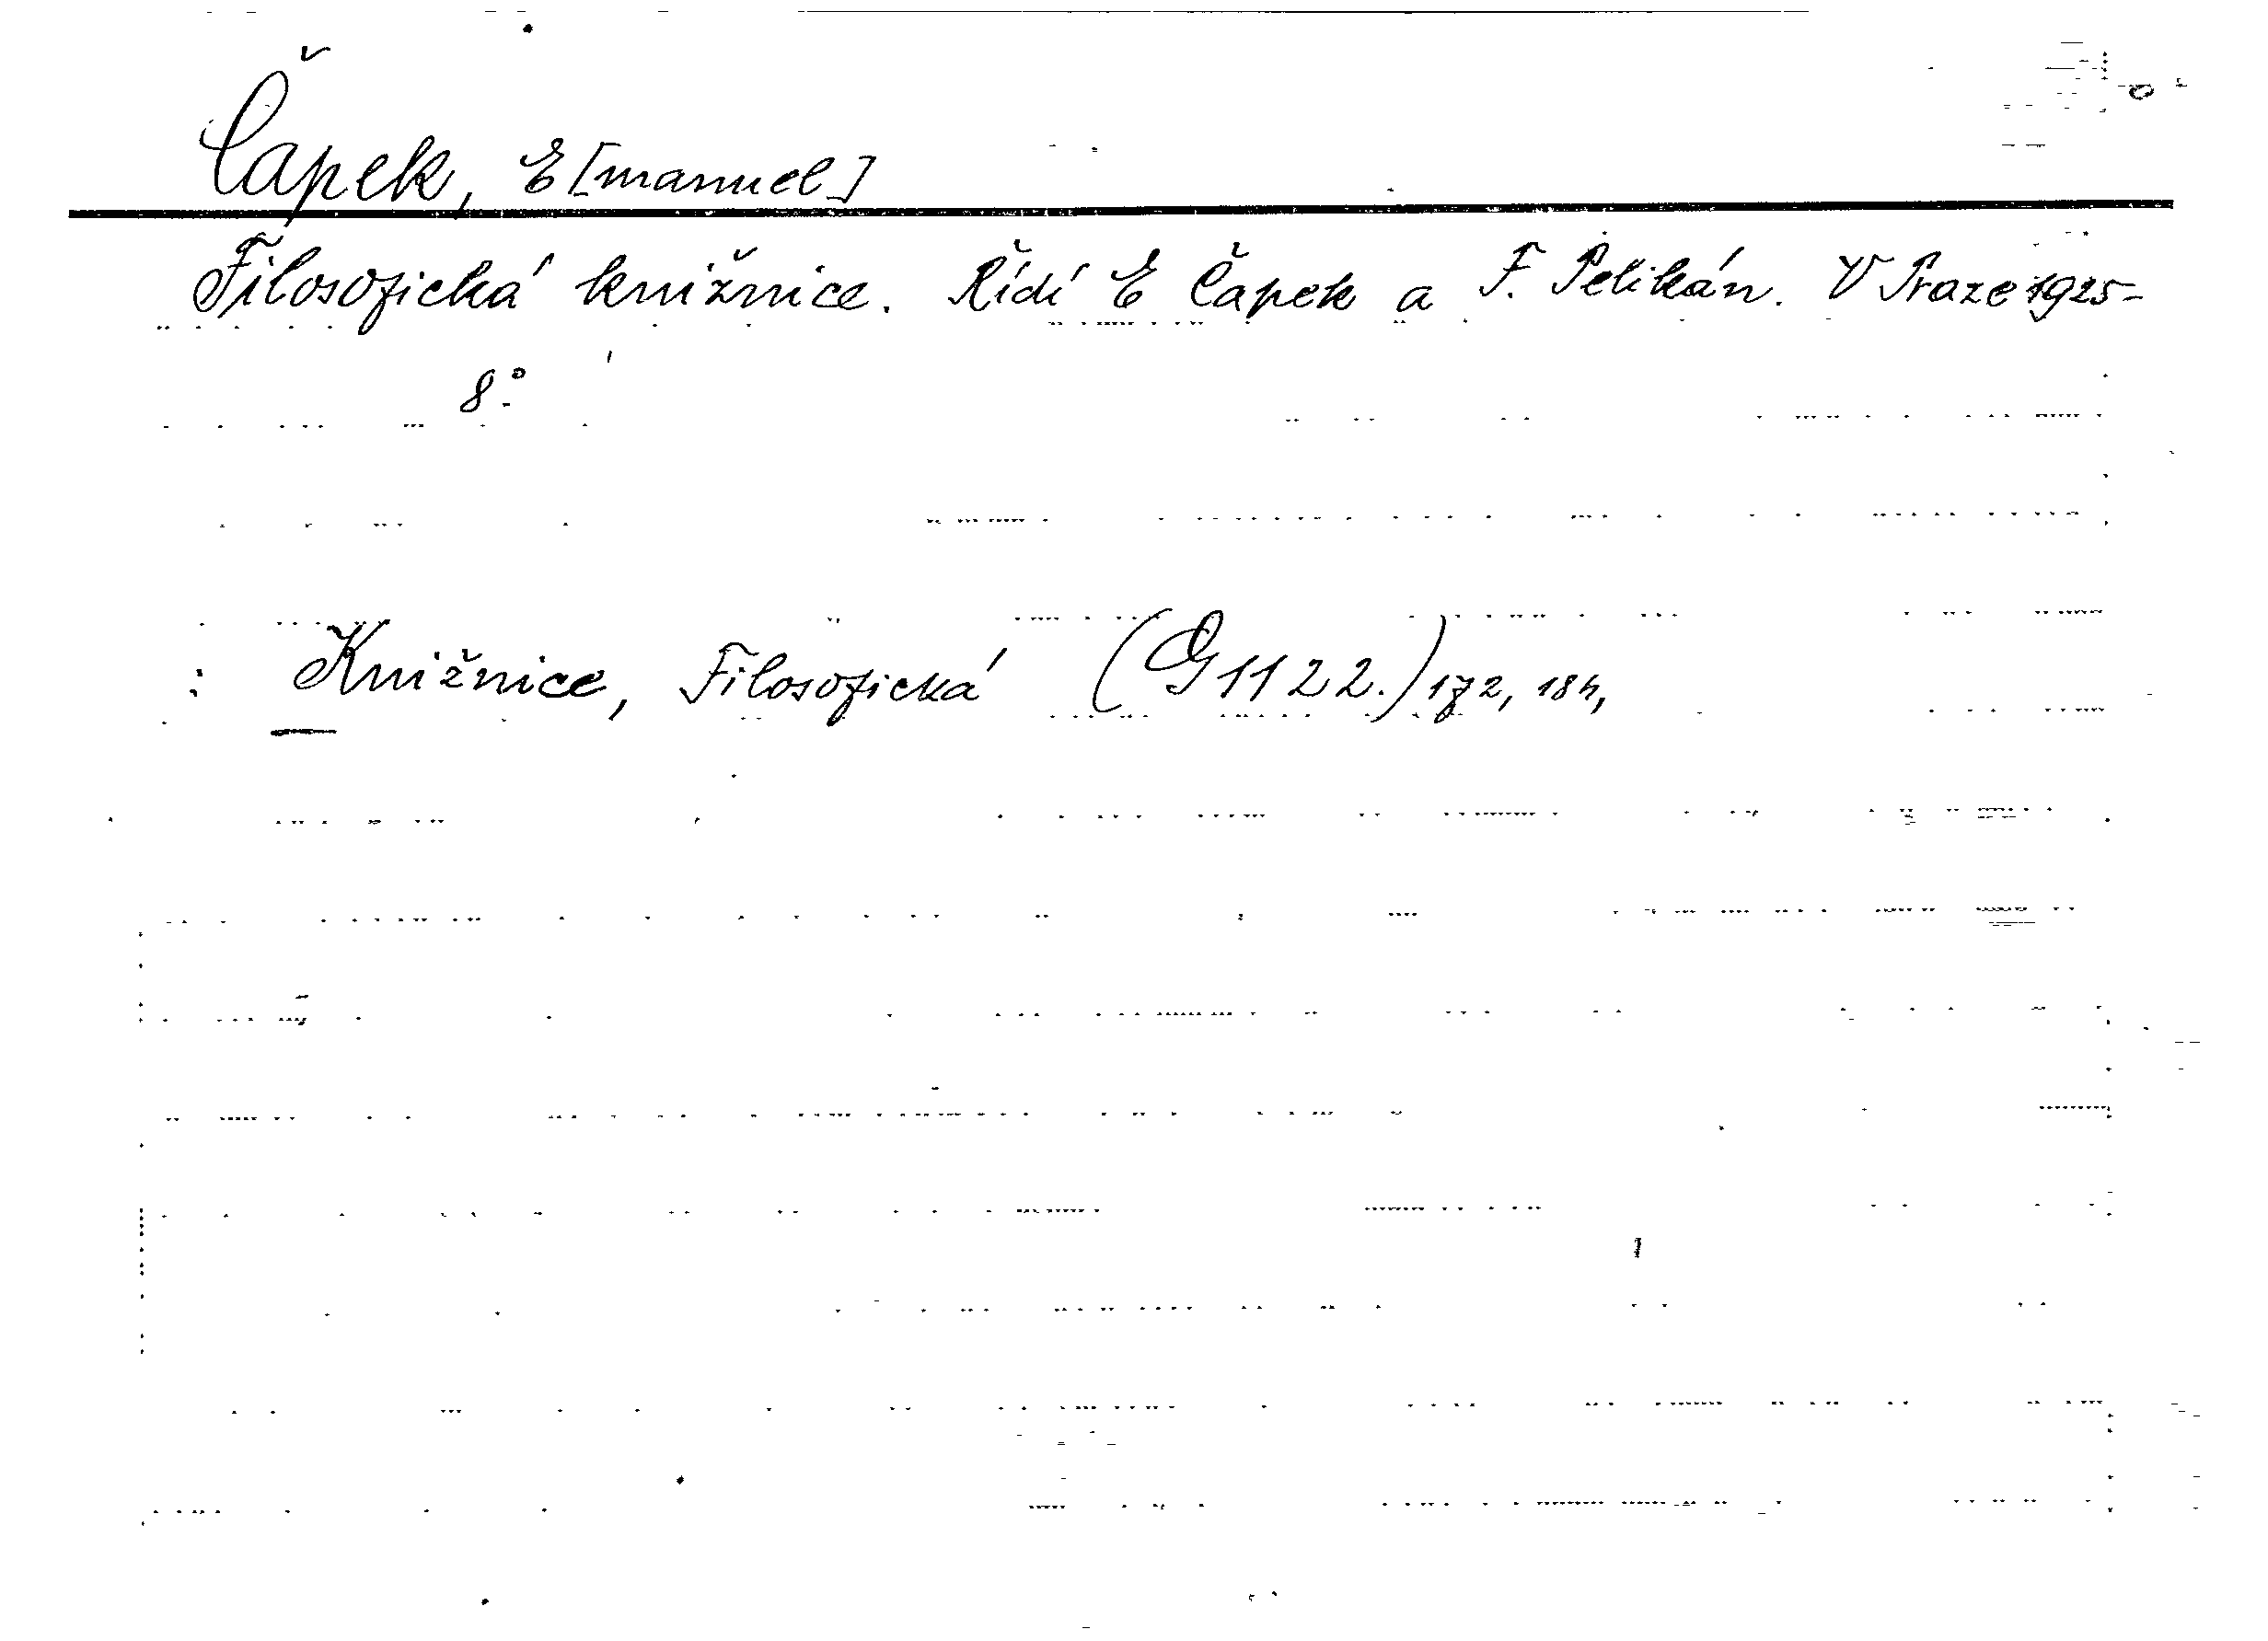 Čapek, E[manuel]
Filosofická knižnice. Řídí E Čapek a F. Pelikán. V Praze 1925-
8º
Knižnice, Filosofická (G 1122.) 172, 184,